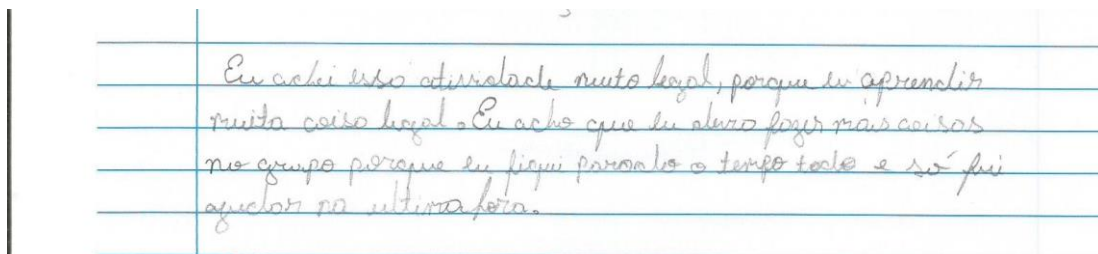 Eu achei essa atividade muito legal, porque eu aprendir
muita coisa legal. Eu acho que eu devo fazer mais coisas
no grupo porque eu fiqui parado o tempo todo e só fui
ajudar na ultima hora.